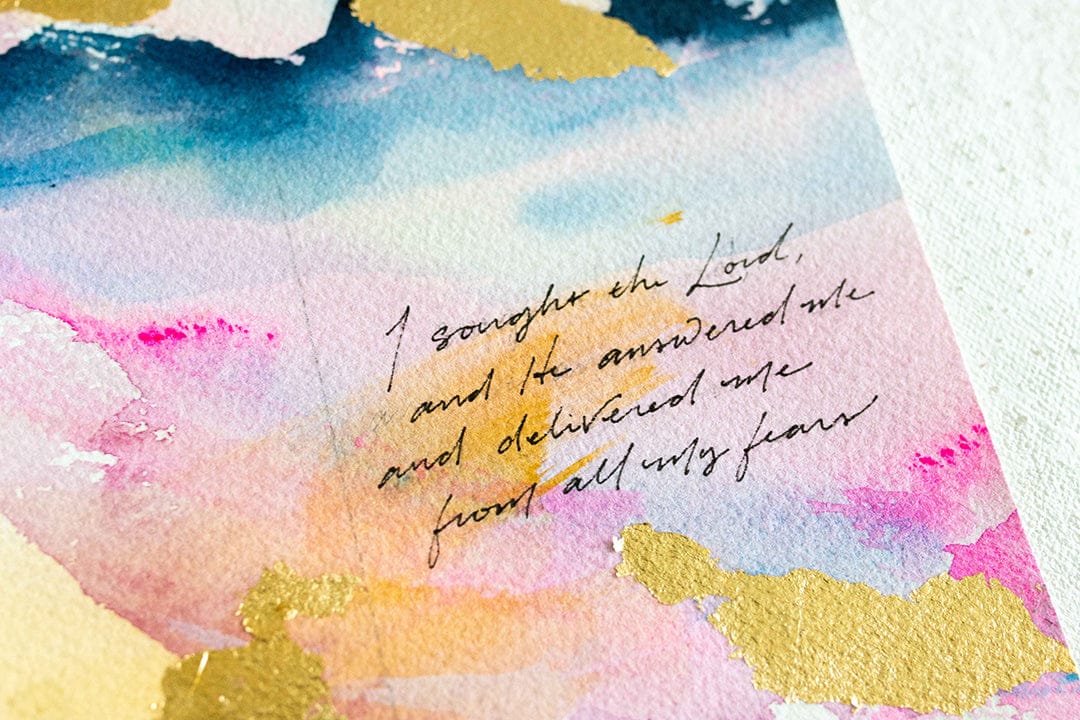 I sought the Lord,
and He answered me
and delivered me
from all my fears